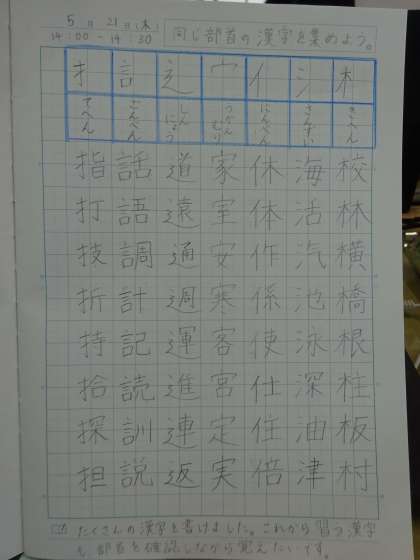 5月21日(木)
14:00-14:30
同じ部首の漢字を集めよう。
扌 言 辶 宀 亻 氵 木
てへん ごんべん しんにょう うかんむり にんべん さんずい きへん
指 話 道 家 休 海 校
打 語 遠 室 体 活 林
技 調 通 安 作 汽 横
折 計 週 寒 係 池 橋
持 記 運 客 使 泳 根
拾 読 進 宮 仕 深 柱
探 訓 連 定 住 油 板
担 説 返 実 倍 津 村
たくさんの漢字を書けました。これから習う漢字
も部首を確認しながら覚えたいです。